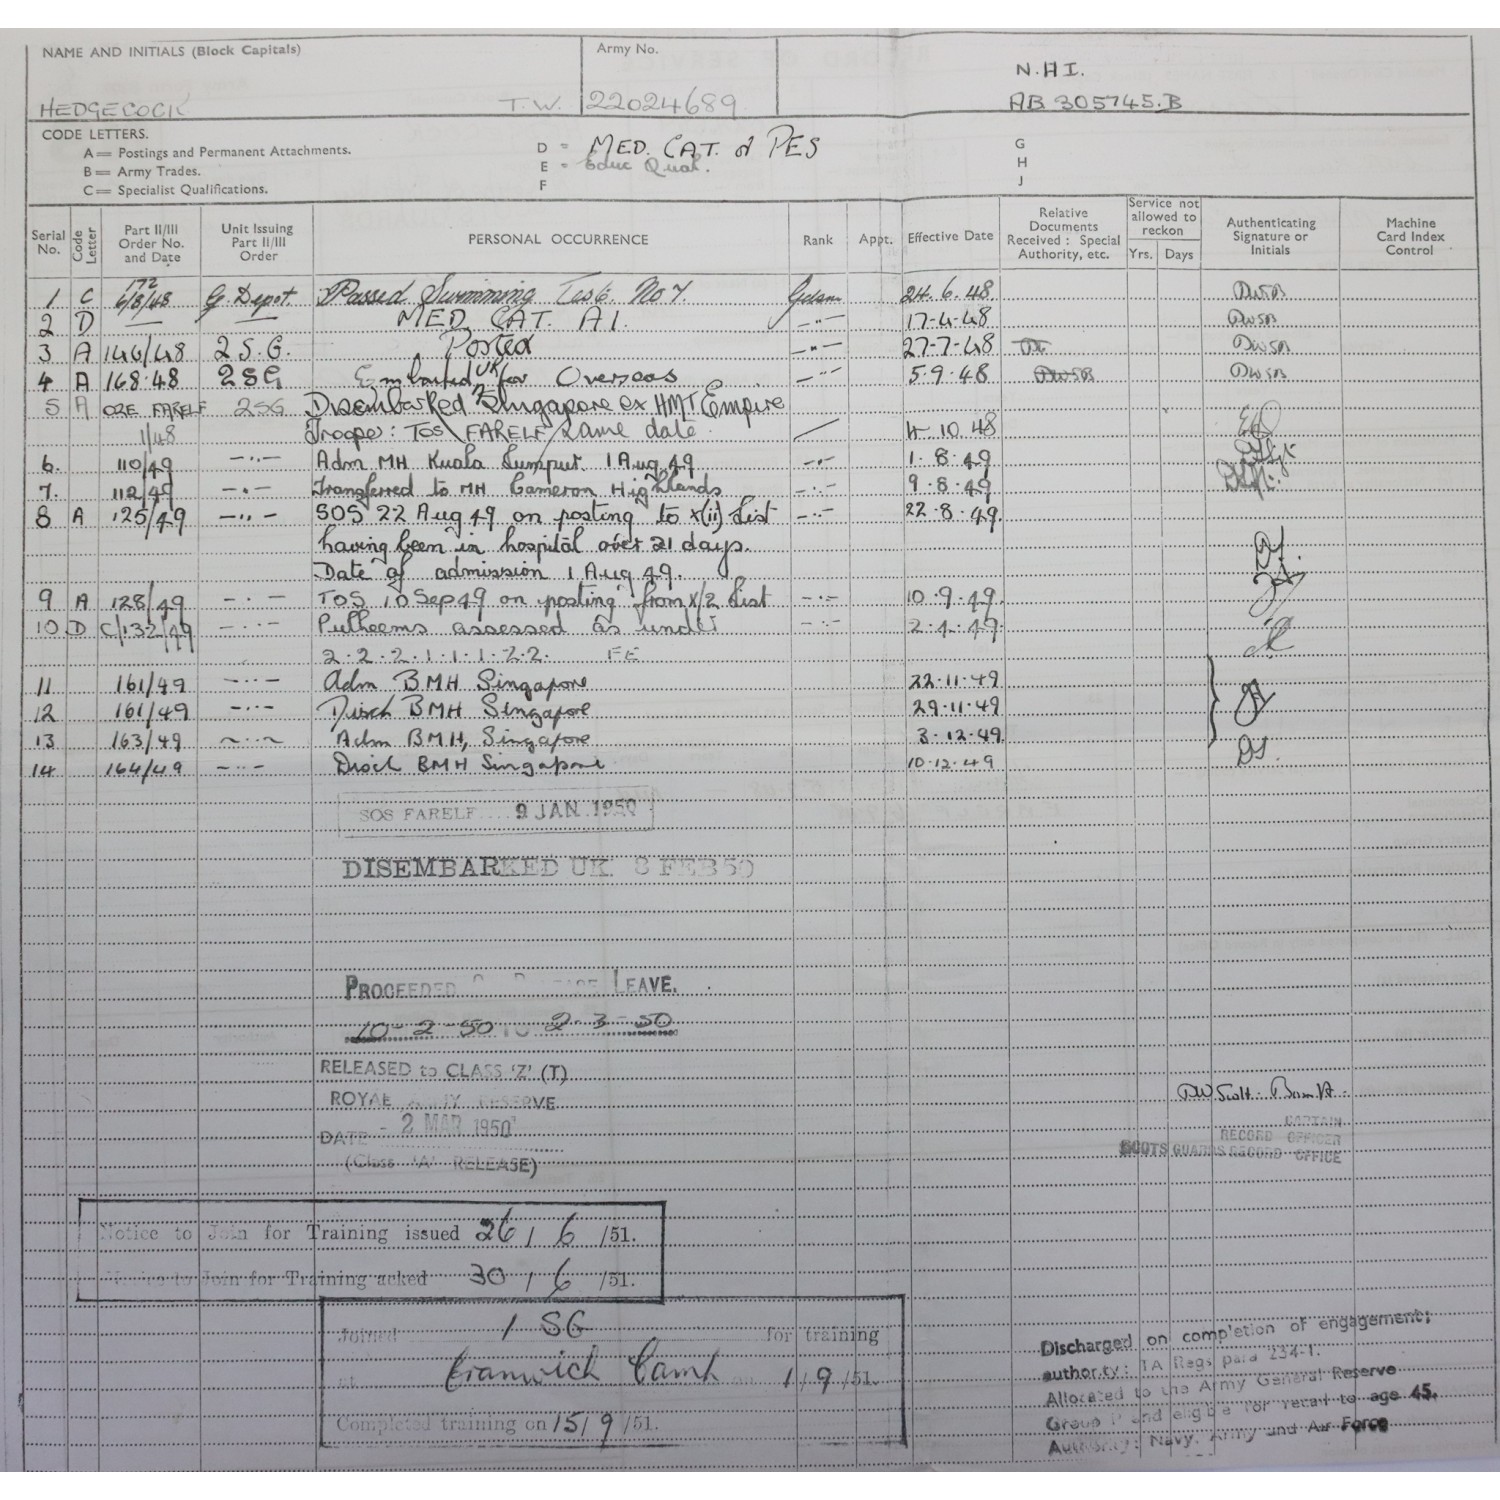 NAME AND INITIALS (Block Capitals)
Army No.
N.H I.
HEDGECOCK T.W. 22024689 AB 305745.B
CODE LETTERS.
A = Postings and Permanent Attachments.
B = Army Trades.
C = Specialist Qualifications.
D = MED. CAT. of PES
E = Educ Qual.
F
G
H
J
Serial No. Code Letter Part II/III Order No. and Date Unit Issuing Part II/III Order PERSONAL OCCURRENCE Rank Appt. Effective Date Relative Documents Received : Special Authority, etc. Service not allowed to reckon Yrs. Days Authenticating Signature or Initials Machine Card Index Control
1 C 172 6/8/48 G. Depot Passed Swimming Test. No 7. Gdsm 24.6.48 DWSB
2 D — — MED CAT. A1. —"— 17-4-48 DWSB
3 A 146/48 2 S.G. Posted —"— 27-7-48 DWSB
4 A 168.48 2SG Embarked UK for Overseas —"— 5.9.48 DWSB DWSB
5 A ORE FARELF 2SG Disembarked Singapore ex HMT Empire
1/48 Trooper: TOS FARELF same date 4.10.48
6. 110/49 —..— Adm MH Kuala Lumpur 1 Aug 49 —.— 1.8.49
7. 112/49 —.— Transferred to MH Cameron Highlands —.— 9.8.49
8 A 125/49 —..— SOS 22 Aug 49 on posting to x(ii) List —.— 22.8.49.
having been in hospital over 21 days.
Date of admission 1 Aug 49.
9 A 128/49 —.— TOS 10 Sep 49 on posting from x/2 List —.— 10.9.49.
10 D C/132/49 —.— Pulheems assessed as under —.— 2.4.49.
2.2.2.1.1.1.2.2. FE
11 161/49 —..— Adm BMH Singapore 22.11.49
12 161/49 —..— Disch BMH Singapore 29.11.49
13 163/49 —..— Adm BMH, Singapore 3.12.49.
14 164/49 —..— Disch BMH Singapore 10.12.49
SOS FARELF .... 9 JAN 1950
DISEMBARKED UK. 8 FEB 50
PROCEEDED LEAVE.
10-2-50 TO 2-3-50
RELEASED to CLASS 'Z' (T)
ROYAL ARMY RESERVE
DATE - 2 MAR 1950
(Class 'A' RELEASE)
CAPTAIN
RECORD OFFICER
SCOTS GUARDS RECORD OFFICE
Notice to Join for Training issued 26/6/51.
Notice to Join for Training acked 30/6/51.
Joined 1 SG for training
at Camp on 1/9/51.
Completed training on 15/9/51.
Discharged on completion of engagement;
authority: TA Regs para 234-1.
Allocated to the Army General Reserve
Group and eligible for recall to age 45.
Authority: Navy, Army and Air Force